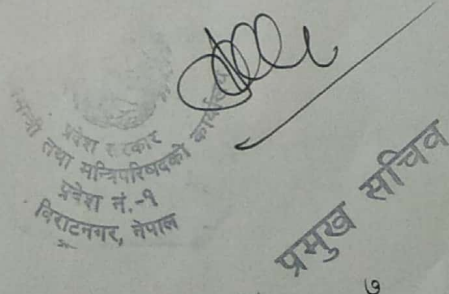 प्रदेश सरकार
मन्त्री तथा मन्त्रिपरिषदको कार्यालय
प्रदेश नं.-१
विराटनगर, नेपाल
प्रमुख सचिव
७